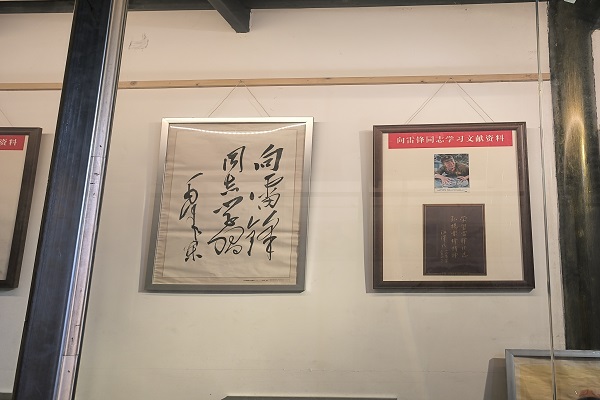 资料
向雷鋒
同志学習
毛泽东
向雷锋同志学习文献资料